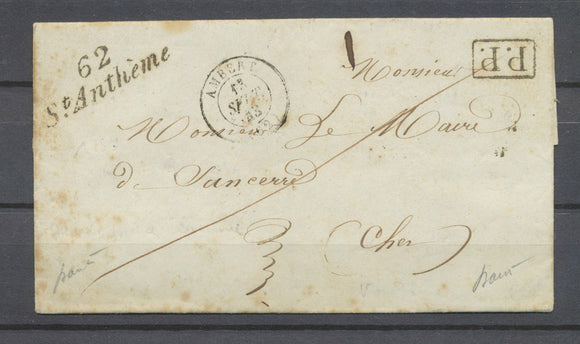 62
St Anthème
AMBERT
SEPT
P.P.
Monsieur
Monsieur Le Maire
de Sancerre
Cher